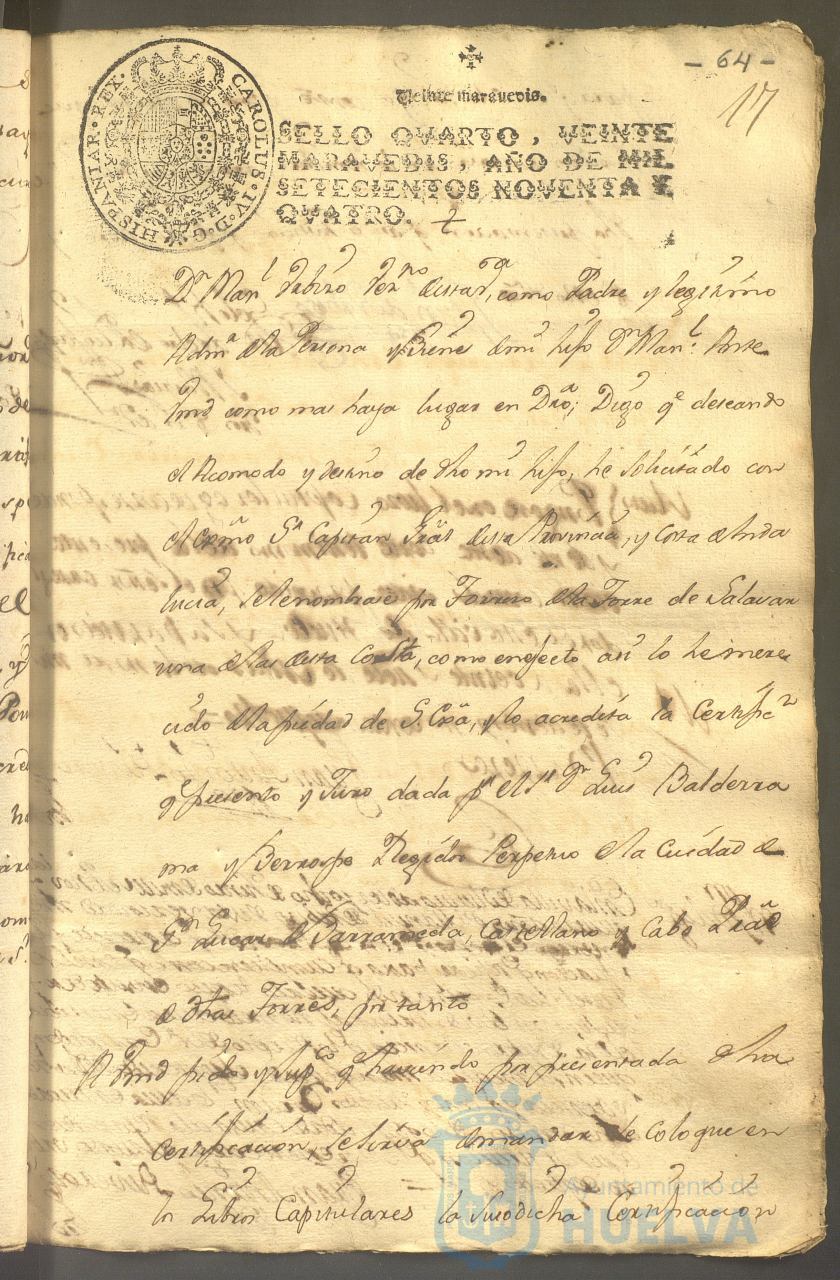 - 64 -
17
CAROLUS · IV · D · G · HISPANIAR · REX ·
Veinte maravedis.
SELLO QVARTO, VEINTE
MARAVEDIS, AÑO DE MIL
SETECIENTOS NOVENTA Y
QVATRO.
Dn Manl, como Padre y legitimo
Admr dela Persona y Bienes de mi hijo Dn Manl. Ante
Vmd como mas haya lugar en Dro; Digo qe deseando
el Acomodo y destino de dho mi hijo, he solicitado con
el exmo Sr Capitan Gral desta Provincia, y Costa de Anda
lucia, se le nombrase por Torrero dela Torre de Salavar
una delas desta Costa, como en efecto asi lo he mere
cido dela piedad de S. Exa, y lo acredita la Certific
qe presento y Juro dada pr el Sr Dn Luis Balderra
ma y Berrospe Regidor Perpetuo dela Ciudad de
Sn Lucar de Barrameda, Castellano y Cabo Pral
de dhas Torres, por tanto
A Vmd pido y supco qe haviendo por presentada dha
certificacion, se sirva de mandar se coloque en
los Libros Capitulares la susodicha Certificacion
Ayuntamiento de
HUELVA